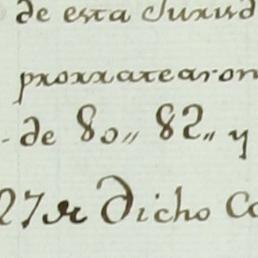 de esta Jurisd
prorratearon
- de 80,, 82,, y
27 de Dicho Co